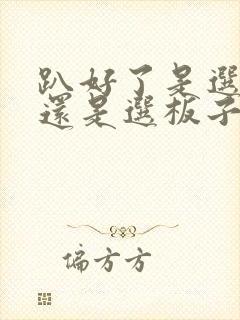 趴好了是選
還是選板子
偏方方